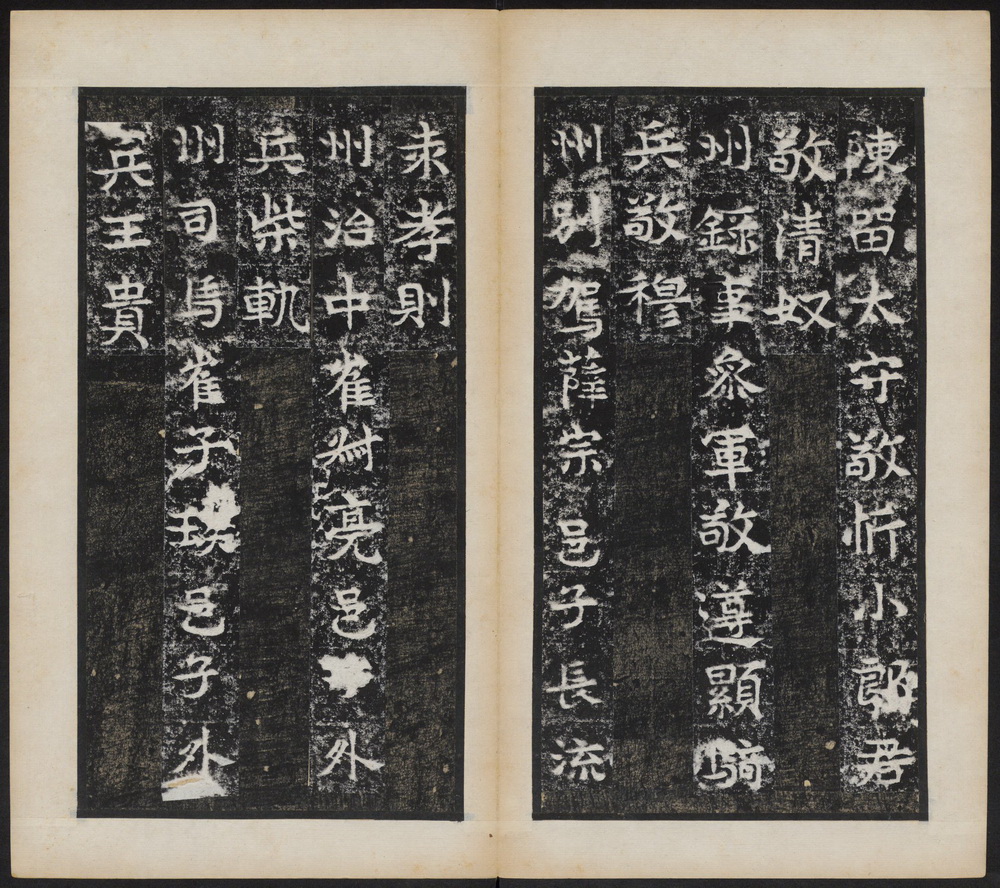 陳留太守敬忻小郎君
敬清奴
州錄事參軍敬遵顯騎
兵敬穆
州別駕薛宗邑子長流
孝則
州治中崔叔亮邑子外
兵柴軌
州司馬崔子瑛邑子外
兵王貴